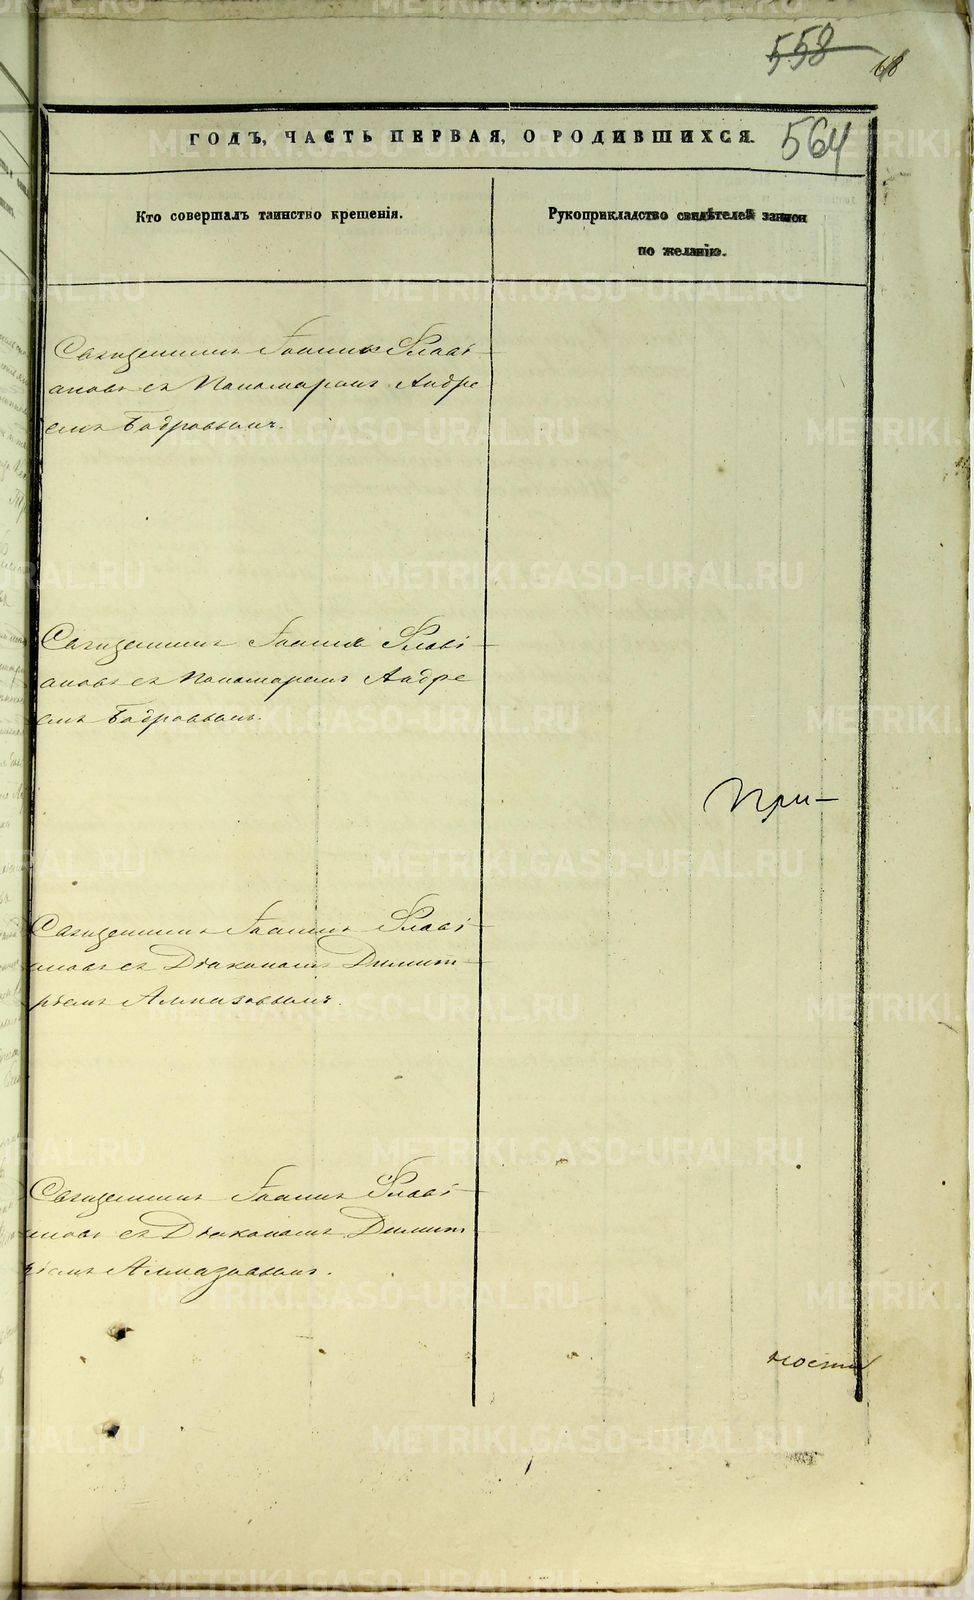 558
68
ГОДЪ, ЧАСТЬ ПЕРВАЯ, О РОДИВШИХСЯ.
564
Кто совершалъ таинство крещенія.
Рукоприкладство свидѣтелей записи
по желанію.
Священникъ Іоаннъ Флаві-
ановъ съ Пономаремъ Андре
емъ Бобровымъ.
Священникъ Іоаннъ Флаві-
ановъ съ Пономаремъ Андре
емъ Бобровымъ.
При-
Священникъ Іоаннъ Флаві-
ановъ съ Діакономъ Димит-
ріемъ Алмазовымъ.
Священникъ Іоаннъ Флаві-
ановъ съ Діакономъ Димит-
ріемъ Алмазовымъ.
ности
METRIKI.GASO-URAL.RU